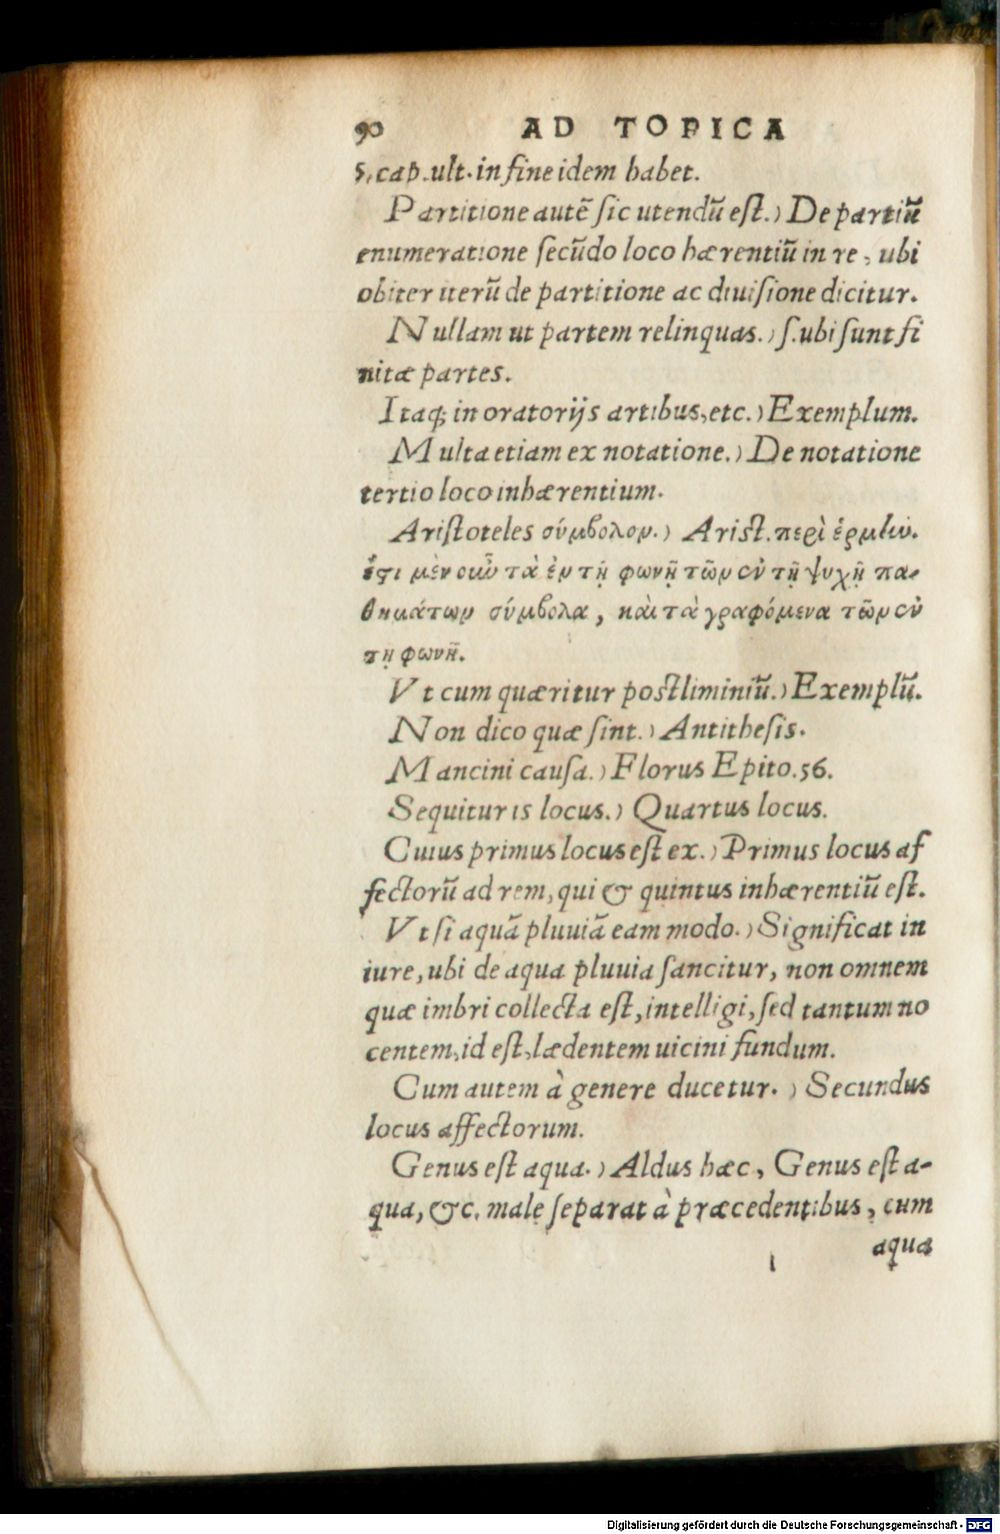 90 AD TOPICA
5. cap. ult. in fine idem habet.
Partitione autẽ ſic utendũ eſt.) De partiũ
enumeratione ſecũdo loco hærentiũ in re, ubi
obiter iterũ de partitione ac diuiſione dicitur.
Nullam ut partem relinquas.) ſ. ubi ſunt fi
nitæ partes.
Itaq; in oratorijs artibus, etc.) Exemplum.
Multa etiam ex notatione.) De notatione
tertio loco inhærentium.
Ariſtoteles σύμβολον.) Ariſt. περὶ ἑρμλω.
ἔςι μὲν οὖν τὰ ἐν τῇ φωνῇ τῶν ἐν τῇ ψυχῇ πα-
θημάτων σύμβολα, καὶ τὰ γραφόμενα τῶν ἐν
τῇ φωνῇ.
Vt cum quæritur poſtliminiũ.) Exemplũ.
Non dico quæ ſint.) Antitheſis.
Mancini cauſa.) Florus Epito. 56.
Sequitur is locus.) Quartus locus.
Cuius primus locus eſt ex.) Primus locus af
fectorũ ad rem, qui & quintus inhærentiũ eſt.
Vt ſi aquã pluuiã eam modo.) Significat in
iure, ubi de aqua pluuia ſancitur, non omnem
quæ imbri collecta eſt, intelligi, ſed tantum no
centem, id eſt, lædentem uicini fundum.
Cum autem à genere ducetur.) Secundus
locus affectorum.
Genus eſt aqua.) Aldus hæc, Genus eſt a-
qua, &c. male ſeparat à præcedentibus, cum
aqua
Digitalisierung gefördert durch die Deutsche Forschungsgemeinschaft - DFG